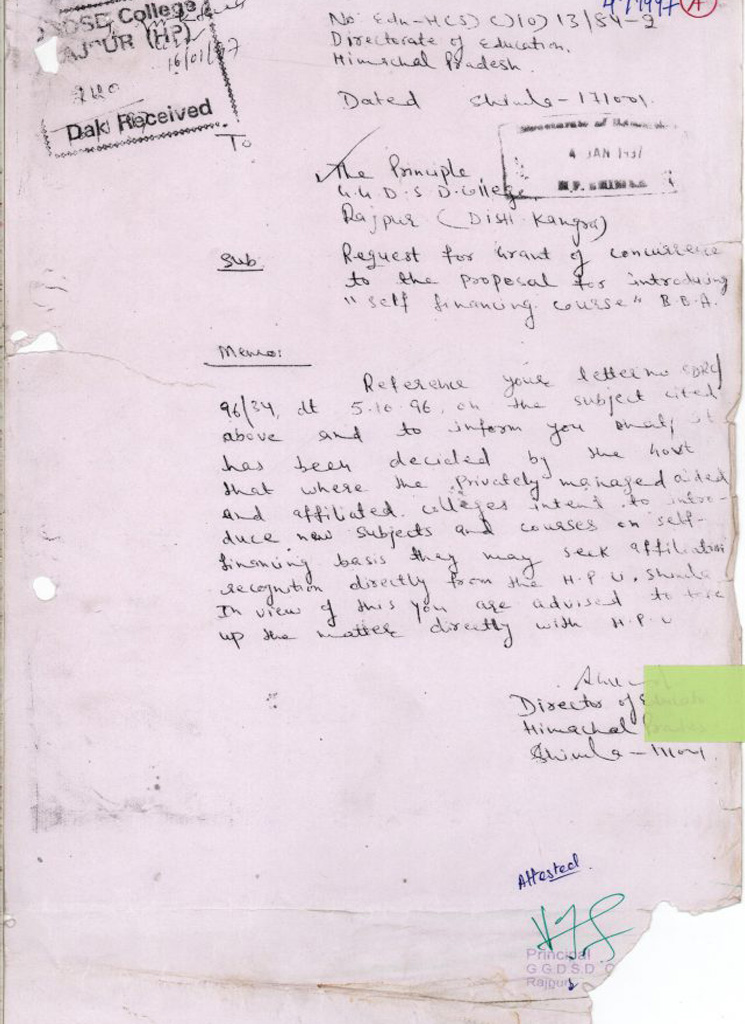 DSD College
RAJPUR (HP)
16/01/97
Dak Received
4/1/1997 A
No Edn-H(S) C)10) 13/84-2
Directorate of Education,
Himachal Pradesh.
Dated Shimla-171001.
To
4 JAN 1997
The Principle,
G.G D. S D. College,
Rajpur (Distt. Kangra)
Sub
Request for Grant of concurrence
to the proposal for introducing
"self financing course" B.B.A.
Memo:
Reference your letter no SDRC/
96/34, dt 5.10.96, on the subject cited
above and to inform you that, it
has been decided by the Govt
that where the privately managed aided
and affiliated colleges intend to intro-
duce new subjects and courses on self-
financing basis they may seek affiliation
recognition directly from the H.P.U. Shimla
In view of this you are advised to take
up the matter directly with H.P.U
Director of Educati
Himachal Prades
Shimla-171001.
Attested.
Principal
G.G.D.S.D. C
Rajpur